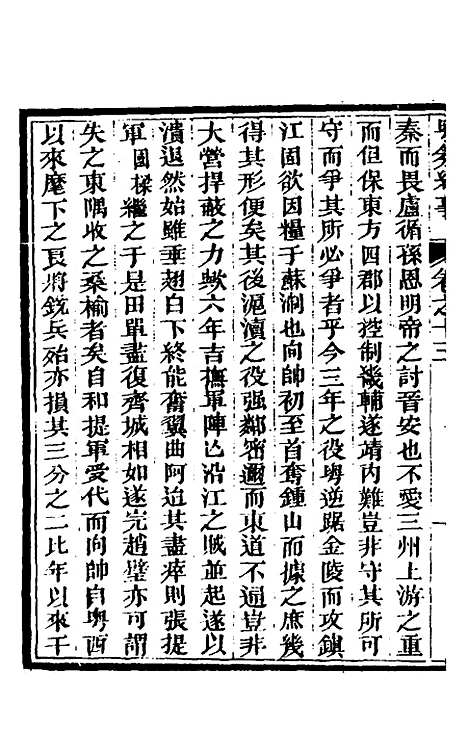 卷之十三
秦而畏盧循孫恩明帝之討晉安也不愛三州上游之重
而但保東方四郡以控制畿輔遂靖内難豈非守其所可
守而爭其所必爭者乎今三年之役粵逆踞金陵而攻鎮
江固欲因糧于蘇浙也向帥初至首奪鍾山而據之庶幾
得其形便矣其後滬瀆之役强鄰密邇而東道不通豈非
大營捍蔽之力歟六年吉撫軍陣亡沿江之賊並起遂以
潰退然始雖垂翅白下終能奮翼曲阿迨其盡瘁則張提
軍國樑繼之于是田單盡復齊城相如遂完趙璧亦可謂
失之東隅收之桑榆者矣自和提軍受代而向帥自粵西
以來麾下之良將銳兵殆亦損其三分之二比年以來干